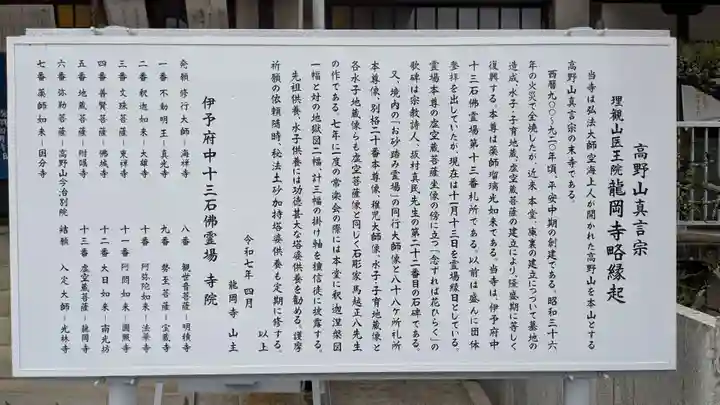 高野山真言宗
理観山医王院 龍岡寺略縁起
当寺は弘法大師空海上人が開かれた高野山を本山とする
高野山真言宗の末寺である。
西暦九〇〇~九二〇年頃、平安中期の創建である。昭和三十六
年の火災で全焼したが、近来、本堂、庫裏の建立につづいて墓地の
造成、水子・子育地蔵、虚空蔵菩薩の建立により、隆盛期に等しく
復興する。本尊は薬師瑠璃光如来である。当寺は、伊予府中
十三石佛霊場第十三番札所である。以前は盛んに団体
参拝を出していたが、現在は十一月十三日を霊場縁日としている。
霊場本尊の虚空蔵菩薩坐像の傍に立つ「念ずれば花ひらく」の
歌碑は宗教詩人、坂村真民先生の第二十二番目の石碑である。
又、境内の「お砂踏み霊場」の同行大師像と八十八ケ所札所
本尊像、別格二十番本尊像、稚児大師像、水子・子育地蔵像と
各水子地蔵像らも虚空菩薩像と同じく石彫家 馬越正八先生
の作である。七年に一度の常楽会の際には本堂に釈迦涅槃図
一幅と対の地獄図二幅、計三幅の掛け軸を檀信徒に披露する。
先祖供養、水子供養には功徳甚大な塔婆供養を勧める。護摩
祈願の依頼随時、秘法土砂加持塔婆供養も定期に修する。
以上
令和七年 四月
龍岡寺 山主
伊予府中十三石佛霊場 寺院
発願 修行大師-海禅寺
一番 不動明王-真光寺
二番 釈迦如来-大雄寺
三番 文珠菩薩-東禅寺
四番 普賢菩薩-佛城寺
五番 地蔵菩薩-附嘱寺
六番 弥勒菩薩-高野山今治別院
七番 薬師如来-国分寺
八番 観世音菩薩-明積寺
九番 勢至菩薩-宝蔵寺
十番 阿弥陀如来-法華寺
十一番 阿閦如来-円照寺
十二番 大日如来-南光坊
十三番 虚空蔵菩薩-龍岡寺
結願 入定大師-光林寺